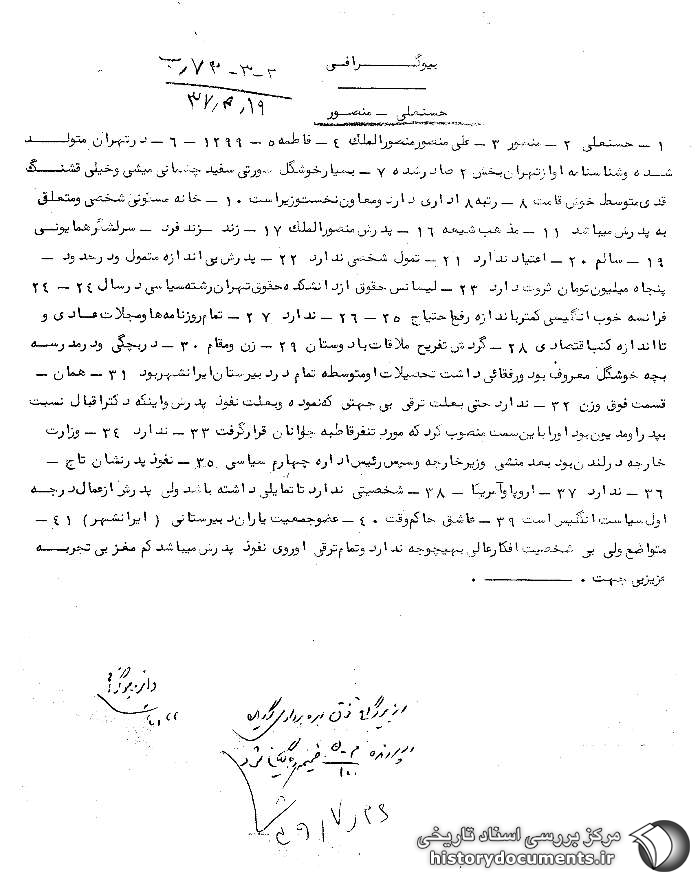 بیوگـــــرافـــی
۳-۳-۷۳/ب
۳۷/۴/۱۹
حسنعلی - منصور
۱ - حسنعلی ۲ - منصور ۳ - علی منصور منصورالملک ۴ - فاطمه ۵ - ۱۲۹۹ - ۶ - در تهران متولد
شده و شناسنامه او از تهران بخش ۲ صادر شده ۷ - بسیار خوشگل صورتی سفید چشمانی میشی و خیلی قشنگ
قدی متوسط خوش قامت ۸ - رتبه ۸ اداری دارد و معاون نخست وزیر است ۱۰ - خانه مسکونی شخصی و متعلق
به پدرش میباشد ۱۱ - مذهب شیعه ۱۶ - پدرش منصورالملک ۱۷ - زند - زند فرد - سرلشگر همایونی
۱۹ - سالم ۲۰ - اعتیاد ندارد ۲۱ - تمول شخصی ندارد ۲۲ - پدرش بی اندازه متمول و در حدود -
پنجاه میلیون تومان ثروت دارد ۲۳ - لیسانس حقوق از دانشکده حقوق تهران رشته سیاسی در سال ۲۴ - ۲۴
فرانسه خوب انگلیسی کمتر باندازه رفع احتیاج ۲۵ - ۲۶ - ندارد ۲۷ - تمام روزنامه ها و مجلات عادی و
تا اندازه کتب اقتصادی ۲۸ - گردش تفریح ملاقات با دوستان ۲۹ - زن و مقام ۳۰ - در بچگی و در مدرسه
بچه خوشگل معروف بود و رفقائی داشت تحصیلات او متوسطه تمام در دبیرستان ایرانشهر بود ۳۱ - همان -
قسمت فوق وزن ۳۲ - ندارد حتی بعلت ترقی بی جهتی که نموده و بعلت نفوذ پدرش و اینکه دکتر اقبال نسبت
بپدر او مدیون بود او را باین سمت منصوب کرد که مورد تنفر قاطبه جوانان قرار گرفت ۳۳ - ندارد ۳۴ - وزارت
خارجه در لندن بود بعد منشی وزیر خارجه و سپس رئیس اداره چهارم سیاسی ۳۵ - نفوذ پدر نشان تاج -
۳۶ - ندارد ۳۷ - اروپا و آمریکا - ۳۸ - شخصیتی ندارد تا تمایلی داشته باشد ولی پدرش از عمال درجه
اول سیاست انگلیس است ۳۹ - عاشق حاکم وقت ۴۰ - عضو جمعیت یاران دبیرستانی ( ایرانشهر ) ۴۱ -
متواضع ولی بی شخصیت افکار عالی بهیچوجه ندارد و تمام ترقی او روی نفوذ پدرش میباشد کم مغز بی تجربه
عزیز بی جهت .
از بیوگرافی فوق بهره برداری گردید
مرکز بررسی اسناد تاریخی
historydocuments.ir